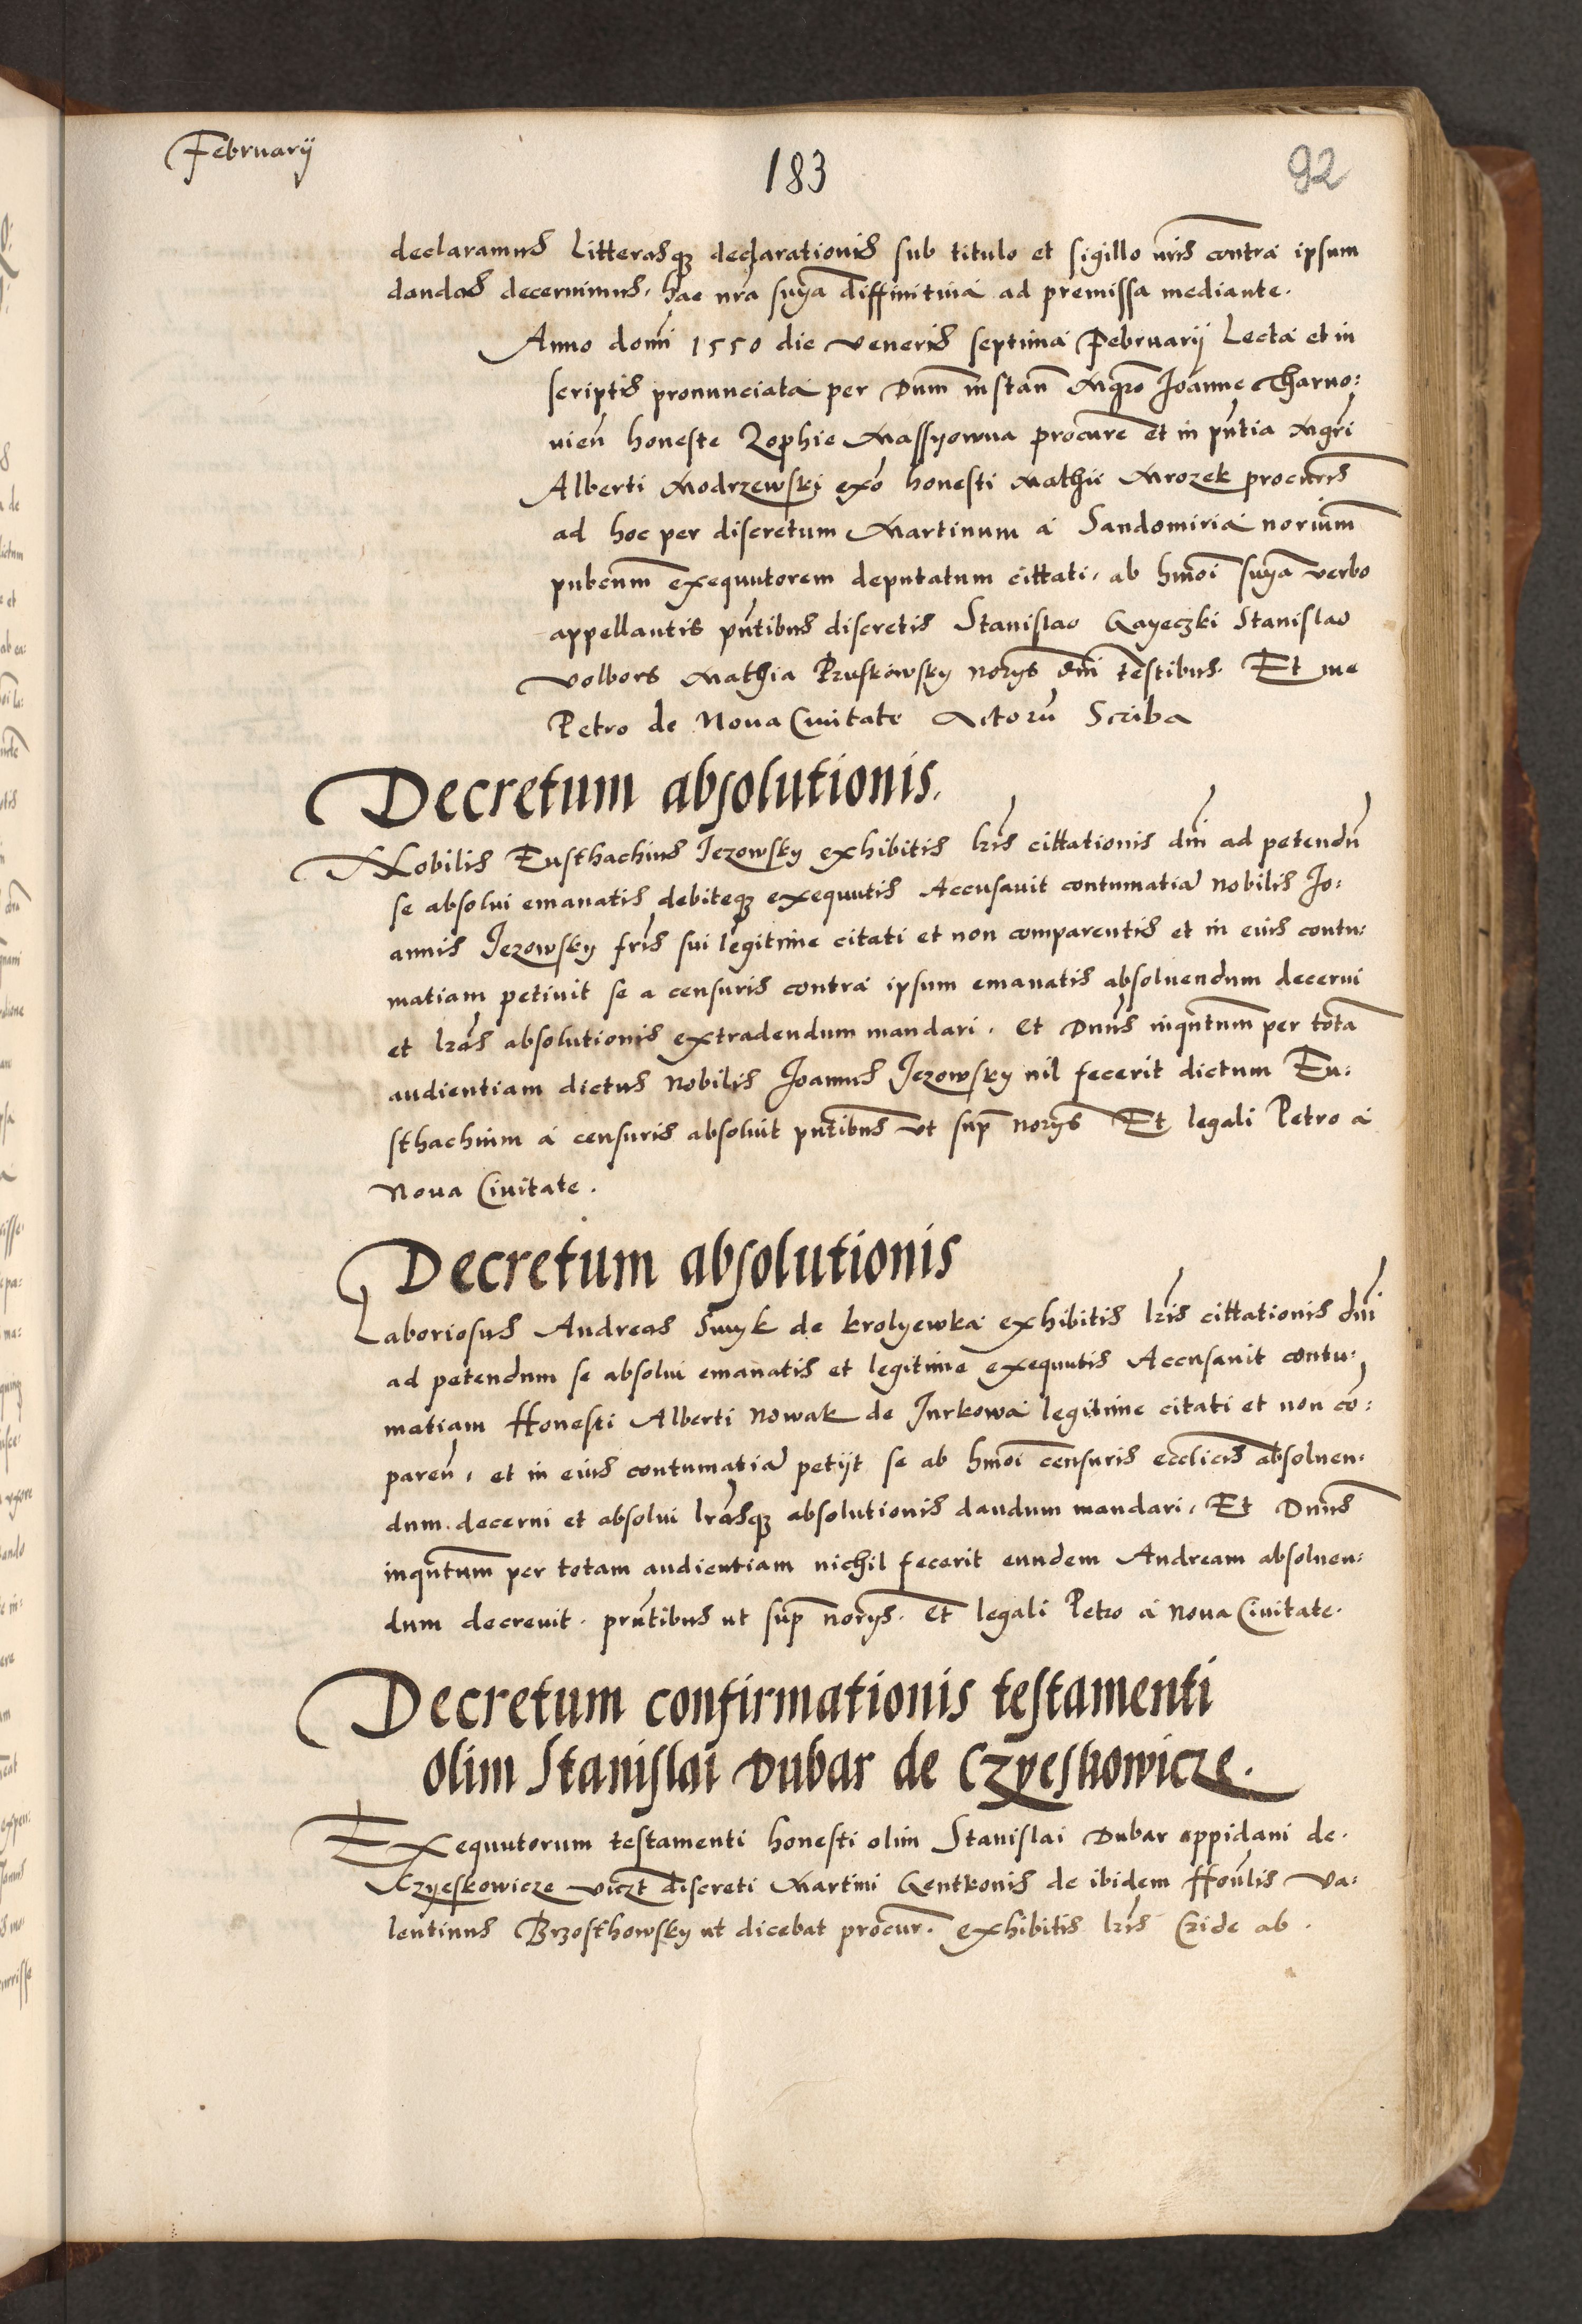 Februarij
183
92
declaramus Litterasq3 declarationis sub titulo et sigillo nris contra ipsum
dandas decernimus. hac nra snya diffinitiua ad premissa mediante.
Anno domi 1550 die veneris septima Februarij Lecta et in
scriptis pronunciata per Dnm instan Mgro Joanne Tharno:
uien honeste Zophie Massyowna procure et in pntia Mgri
Alberti Modrzewski exo honesti Mathie Mrozek procuris
ad hoc per discretum Martinum a Sandomiria norium
pubcum exequutorem deputatum cittati. ab hmoi snya verbo
appellantis pntibus discretis Stanislao Gayeczki Stanislao
Volbors Mathia Pruskowsky norys dni testibus. Et me
Petro de Noua Ciuitate Actorum Scriba
Decretum absolutionis.
Nobilis Eusthachius Jezowsky exhibitis lris cittationis dni ad petendu
se absolui emanatis debiteq3 exequutis Accusauit contumatia Nobilis Jo:
annis Jezowsky fris sui legittime citati et non comparentis et in eius contu:
matiam petiuit se a censuris contra ipsum emanatis absoluendum decerni
et lras absolutionis extradendum mandari. Et Dnus inqntum per tota
audientiam dictus Nobilis Joannes Jezowsky nil fecerit dictum Eu:
sthachium a censuris absoluit pntibus vt sup norys Et legali Petro a
Noua Ciuitate.
Decretum absolutionis
Laboriosus Andreas Smyk de Krolyewka exhibitis lris cittationis dni
ad petendum se absolui emanatis et legitime exequutis Accusauit contu:
matiam Honesti Alberti Nowak de Jurkowa legitime citati et non co:
paren, et in eius contumatia petijt se ab hmoi censuris ecclicis absoluen:
dum decerni et absolui lrasq3 absolutionis dandum mandari. Et Dnus
inqntum per totam audientiam nichil fecerit eundem Andream absoluen:
dum decreuit. prntibus ut sup norys. Et legali Petro a Noua Ciuitate.
Decretum confirmationis testamenti
olim Stanislai Dubar de Czyeskowicze.
Exequutorum testamenti honesti olim Stanislai Dubar oppidani de
Czyeskowicze viczt discreti Martini Gentkonis de ibidem Honlis Va:
lentinus Brzosthowsky ut dicebat procur. exhibitis lris Cride ab